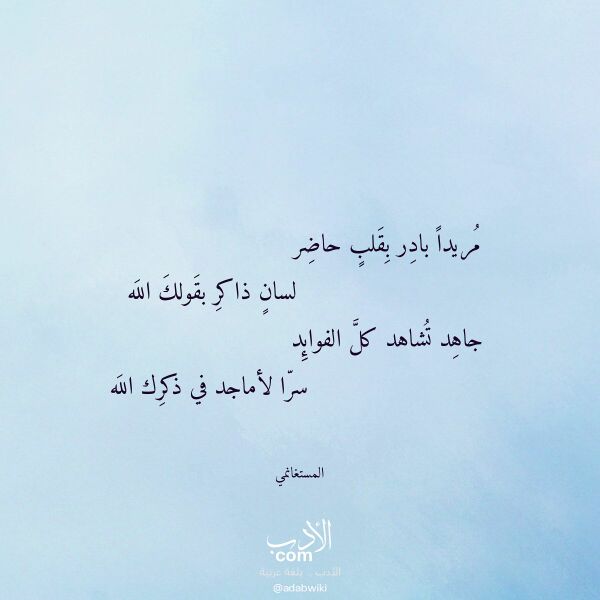 مُريداً بادِر بِقَلبٍ حاضِر
لسانٍ ذاكرِ بقَولكَ الله
جاهِد تُشاهد كلَّ الفوائِد
سرّا لأماجد في ذكرِك الله
المستغانمي
الأدب
com
الأدب .. بلغة عربية
@adabwiki